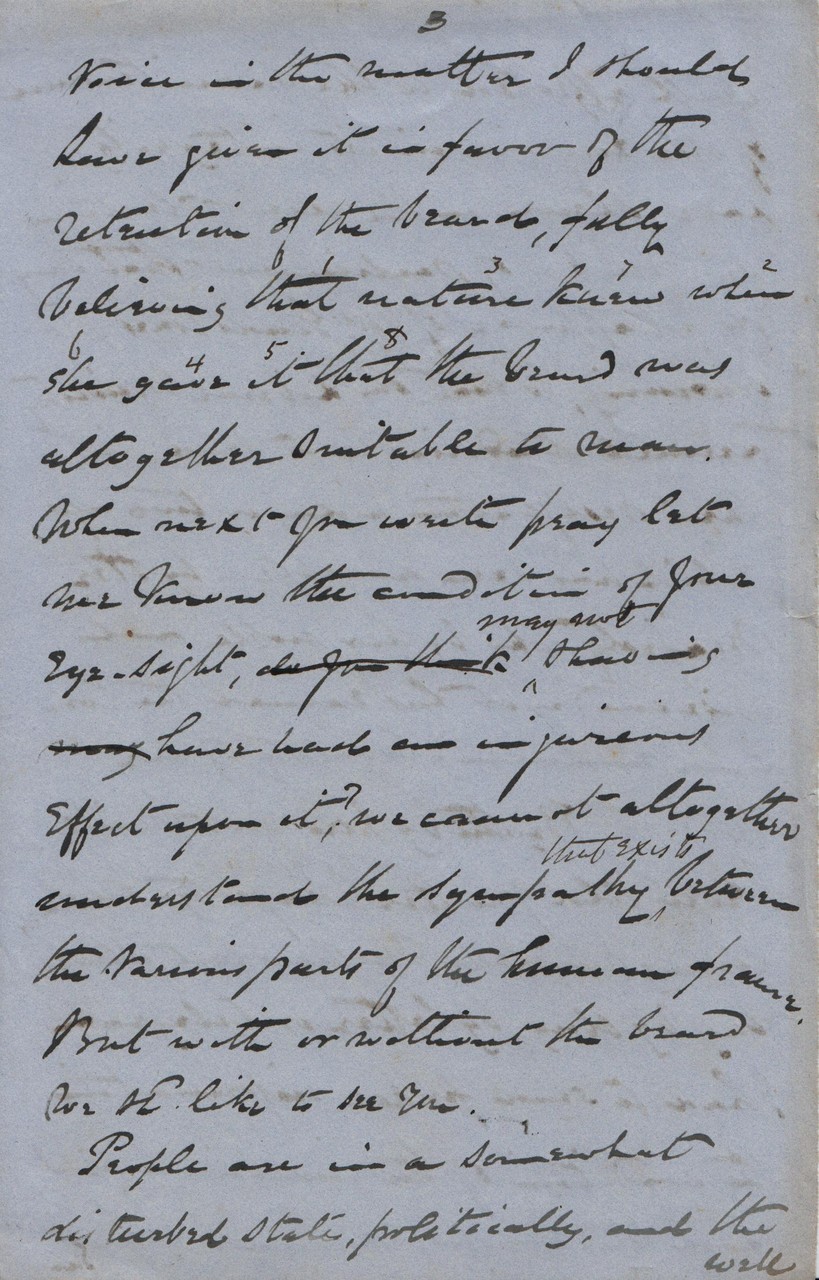 3
Voice in the matter I should
have given it in favor of the
retention of the beard, fully
1 3 7 2
believing that nature knew when
6 4 5 8
she gave it that the beard was
altogether suitable to man.
When next you write pray let
me know the condition of your
may not
Eye-sight, do you think shaving
may have had an injurious
Effect upon it? we cannot altogether
that exists
understand the sympathy between
the various parts of the human frame.
But with or without the beard
we sd. like to see you.
People are in a somewhat
disturbed state, politically, and the
well